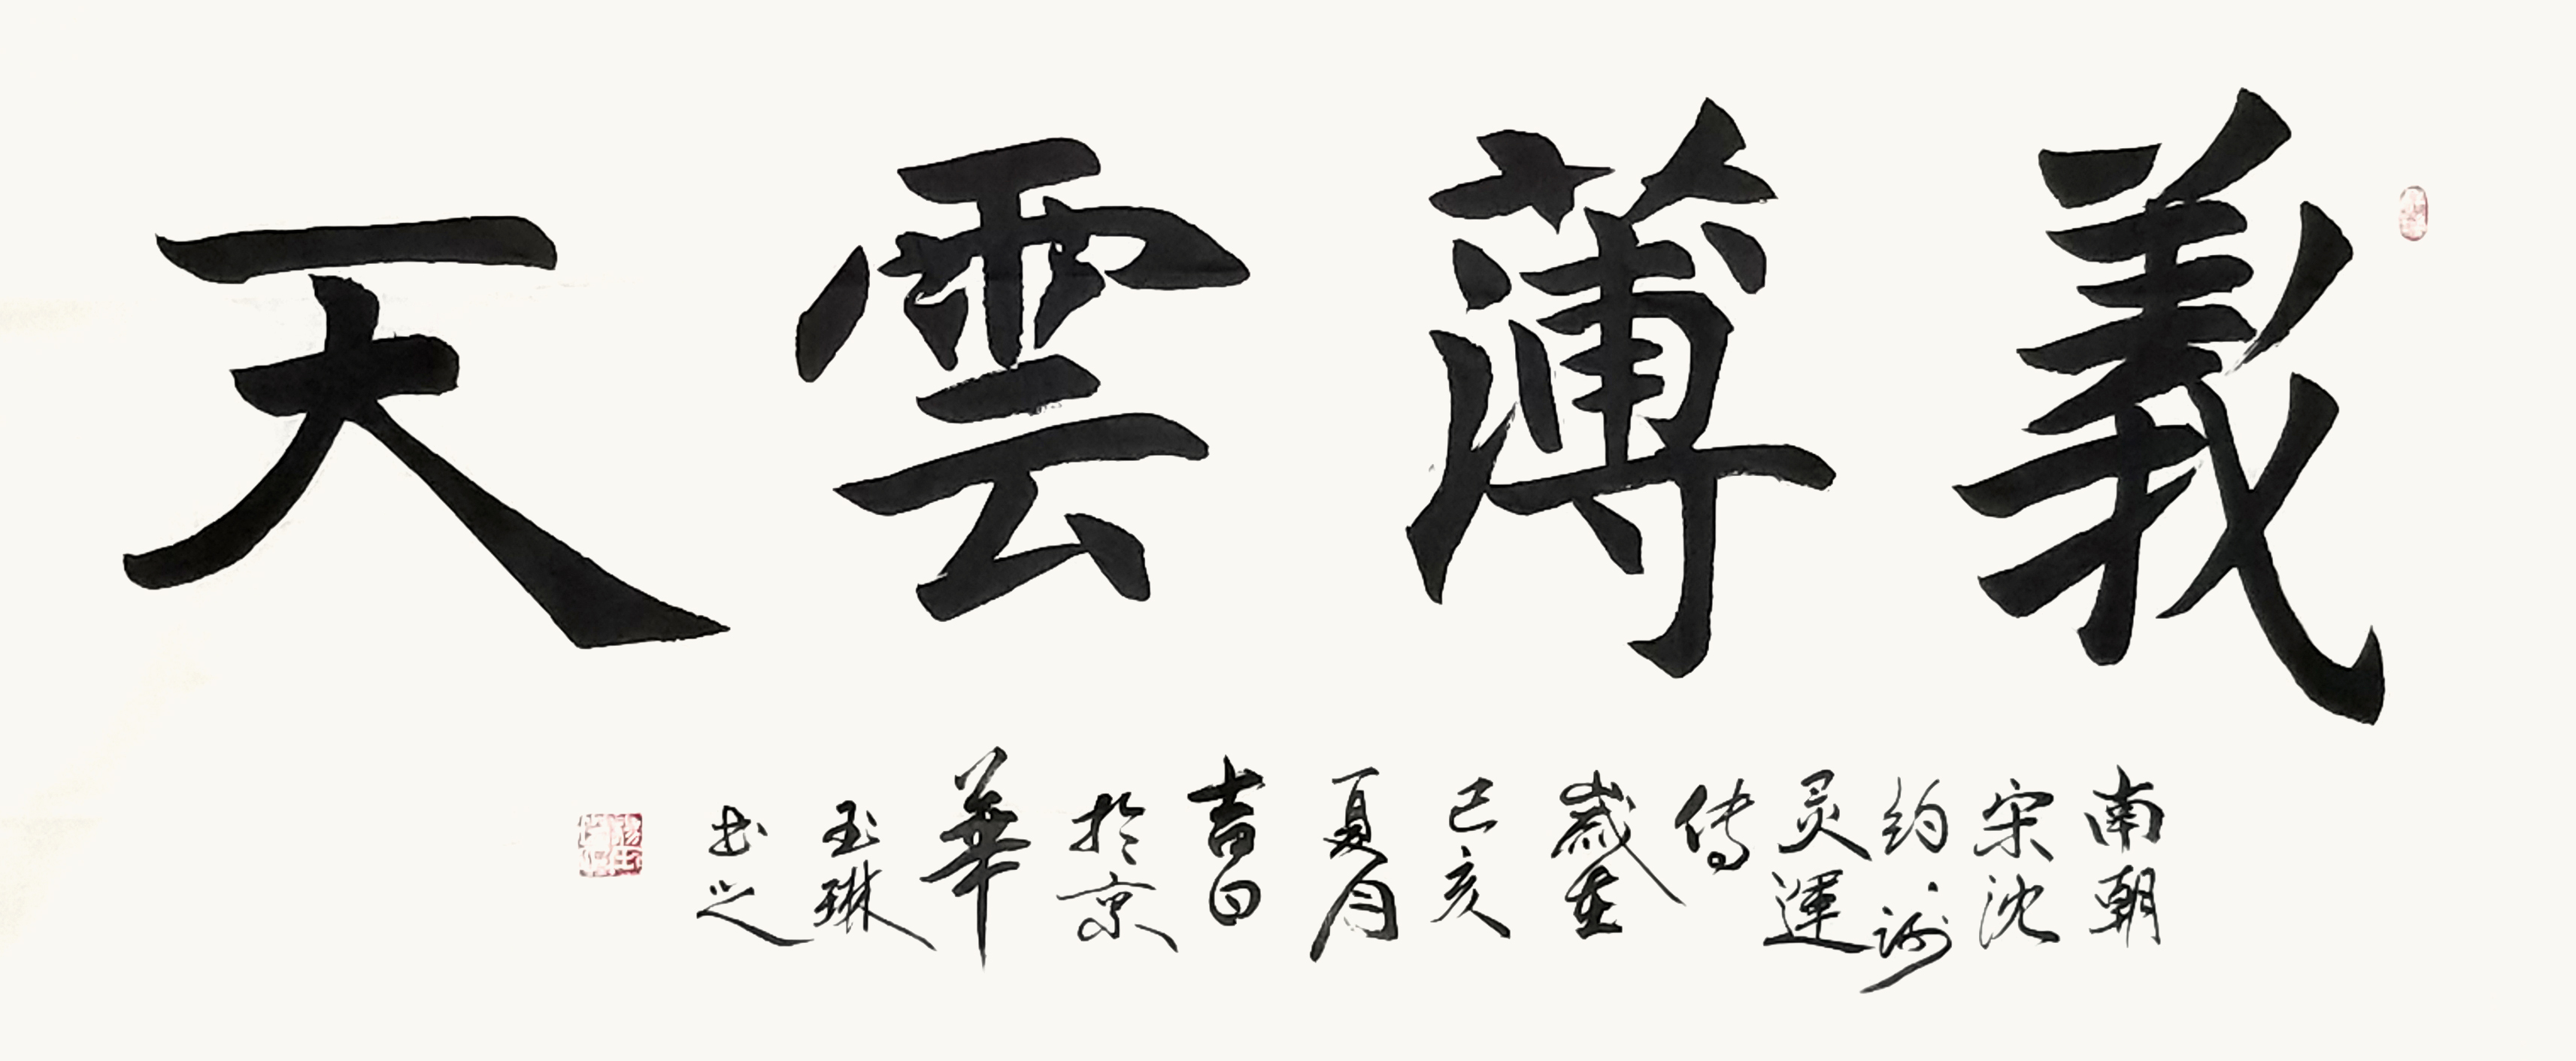 義薄雲天
南朝
宋沈
約·谢
灵運
传
歲在
己亥
夏月
吉日
於京
華
玉琳
书之